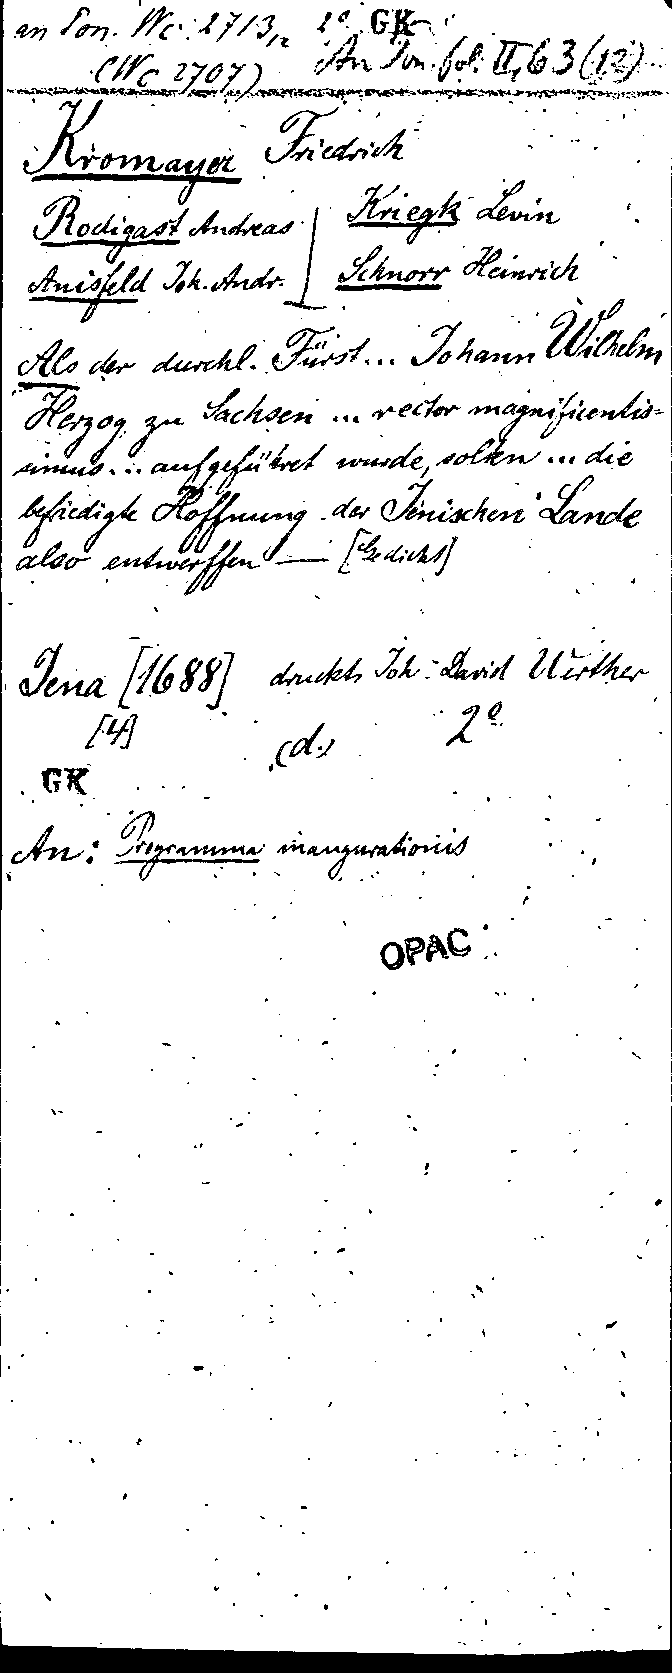 an Pon. Wc. 2713,12 2° GK
(Wc 2707) An Pon. fol. II, 63 (12)
Kromayer Friedrich
Rodigast Andreas Kriegk Levin
Anisfeld Joh. Andr. Schnorr Heinrich
Als der durchl. Fürst... Johann Wilhelm
Herzog zu Sachsen ... rector magnificentis-
simus... aufgeführet wurde, solten ... die
befriedigte Hoffnung der Jenischen Lande
also entwerffen — [Gedicht]
Jena [1688] druckts Joh. David Werther
[4] (d.) 2°
GK
An: Programma inaugurationis
OPAC